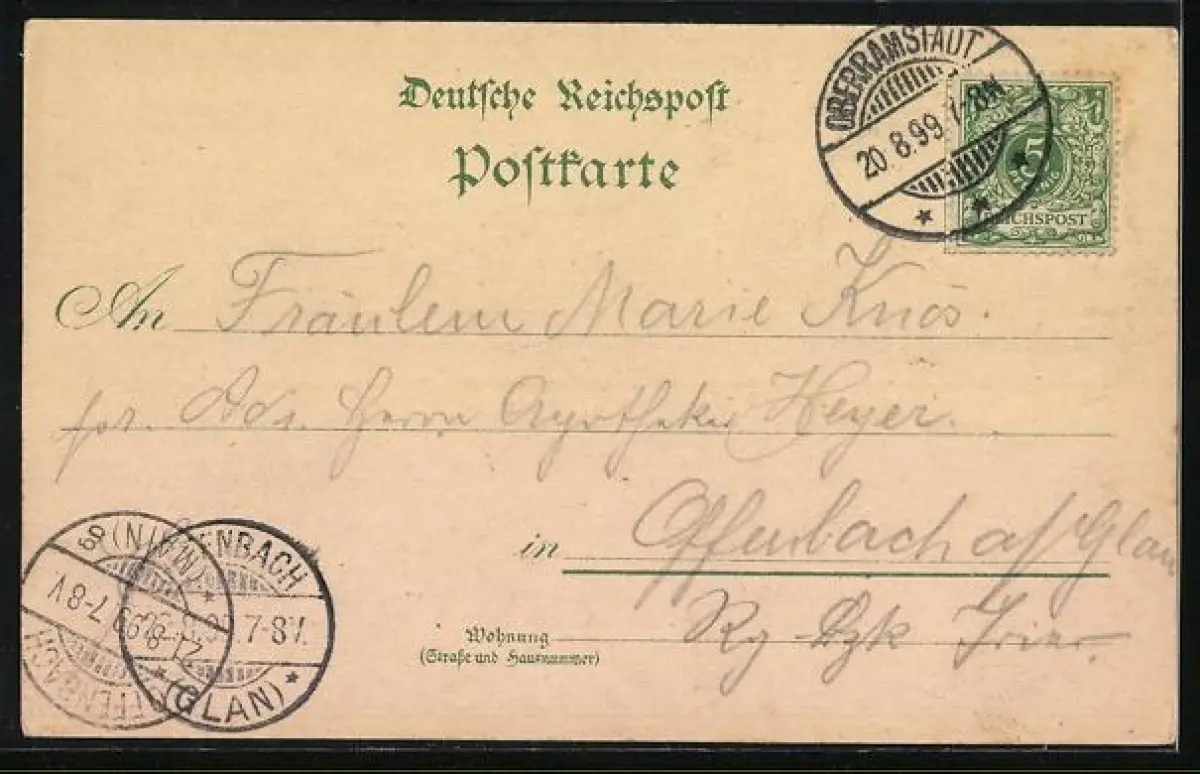 Deutsche Reichspost
Postkarte
OBERRAMSTADT
20.8.99. 7-8N
5
REICHSPOST
An Fräulein Marie Knös.
Adr. Herrn Apotheker Heyer.
in Offenbach a/Glan
Wohnung
(Straße und Hausnummer)
Rg Bzk Trier
OFFENBACH (MAIN)
21.8.99 7-8V
7-8V.
(GLAN)